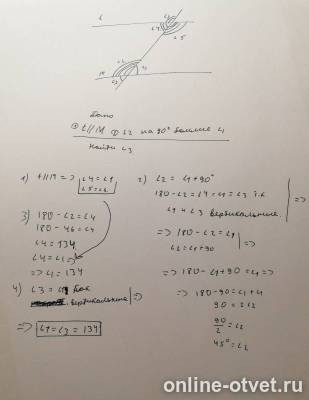 L
∠3
∠4
∠5
∠2
M
∠1
∠3
Дано
① L // M ② ∠2 на 90° больше ∠1
Найти ∠3
1) L // M => ∠4 = ∠1
∠5 = ∠2
2) ∠2 = ∠1 + 90°
180 - ∠2 = ∠1 = ∠3 т.к
∠1 и ∠3 вертикальные
=>
=> 180 - ∠2 = ∠1
∠2 = ∠1 + 90
=>
=> 180 - ∠1 + 90 = ∠1 =>
=> 180 - 90 = ∠1 + ∠1
90 = 2∠
90/2 = ∠
45° = ∠
3) 180 - ∠2 = ∠4
180 - 46 = ∠4
∠4 = 134
∠4 = ∠1 =>
=> ∠1 = 134
4) ∠3 = ∠1 как
вертикальные
=>
=> ∠1 = ∠3 = 134
online-otvet.ru